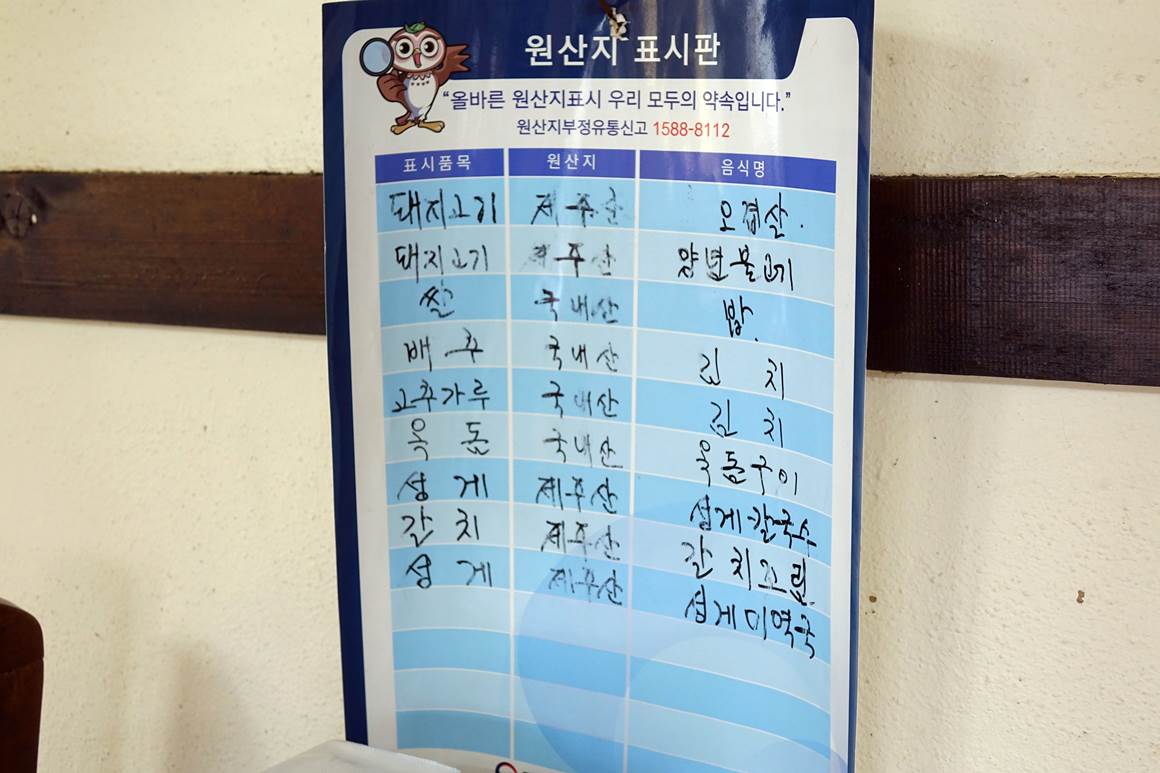 원산지 표시판
“올바른 원산지표시 우리 모두의 약속입니다.”
원산지부정유통신고 1588-8112
표시품목 원산지 음식명
돼지고기 제주산 오겹살.
돼지고기 제주산 양념불고기
쌀 국내산 밥.
배추 국내산 김치
고추가루 국내산 김치
옥돔 국내산 옥돔구이
성게 제주산 성게칼국수
갈치 제주산 갈치조림
성게 제주산 성게미역국